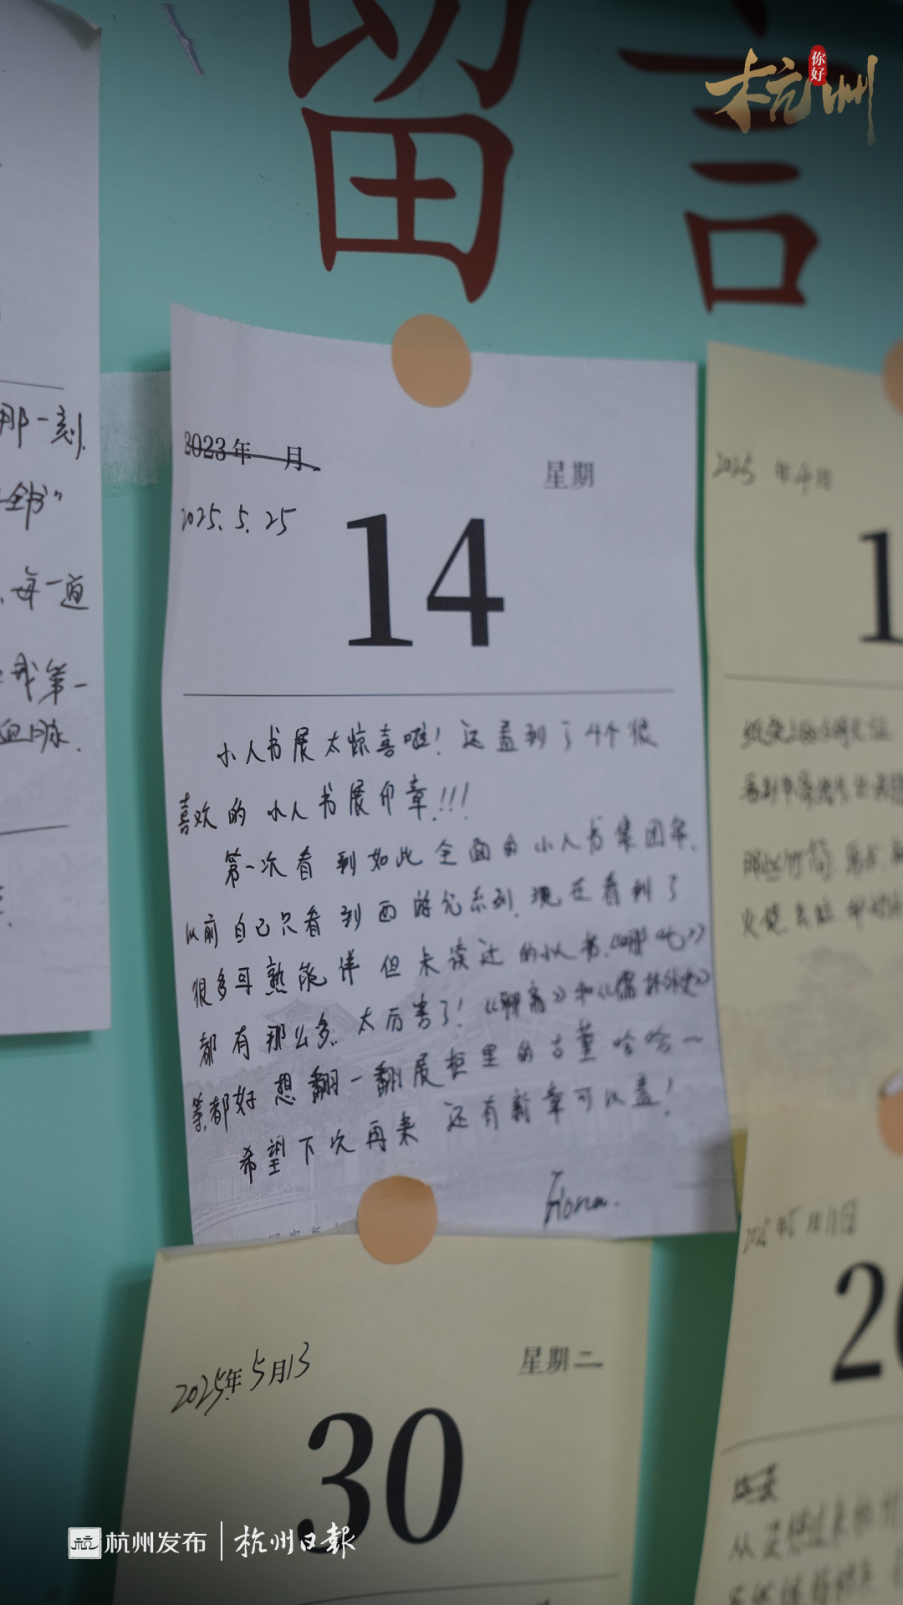 留言
你好
杭州
那一刻.
全书”
每一道
我第一
血脉.
2023年 月
星期
2025.5.25
14
小人书展太惊喜啦！还盖到了4个很
喜欢的小人书展印章!!!
第一次看到如此全面的小人书集团军.
以前自己只看到西游记系列.现在看到了
很多耳熟能详但未读过的小人书.《哪吒》
都有那么多.太厉害了！《聊斋》和《儒林外史》
等.都好想翻一翻展柜里的古董哈哈~
希望下次再来还有新章可以盖！
Fiona.
2025 年4月
1
2025年5月13
星期二
30
2025年5月11日
2
杭州发布
杭州日报